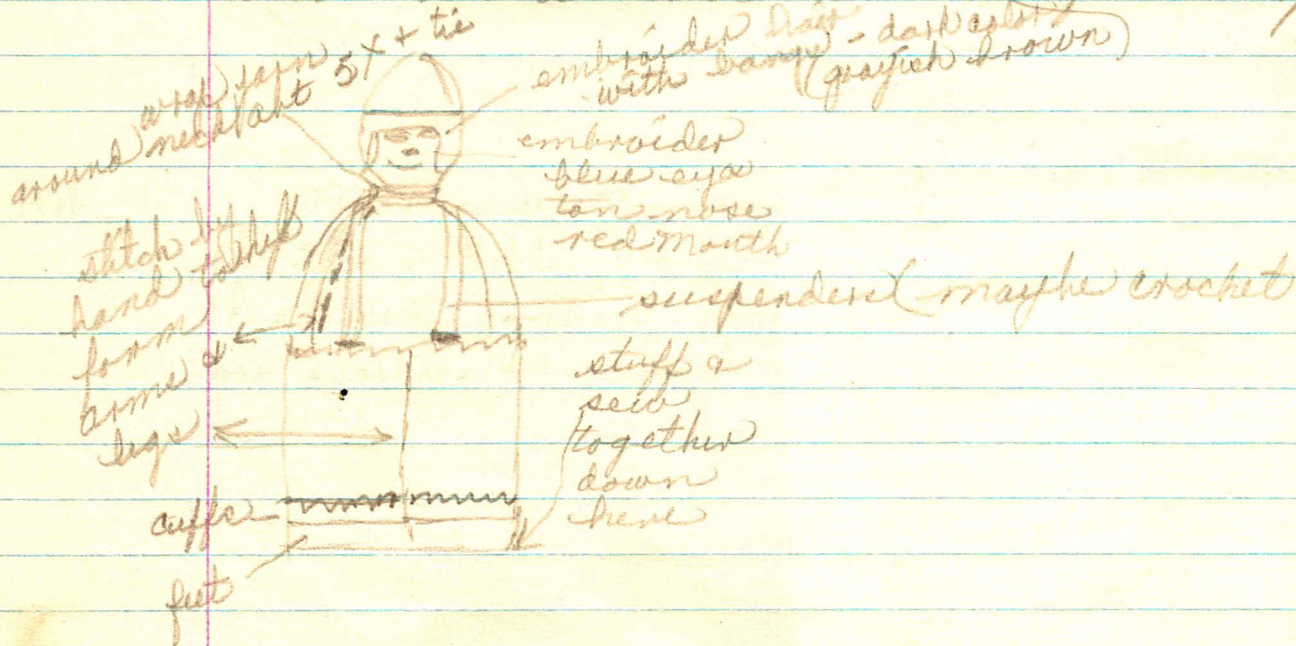 wrap yarn
around neck abt 5X + tie
embroider hair - dark color
with bangs (grayish brown)
embroider
blue eye
tan nose
red mouth
stitch by
hand to
form
arms &
legs
suspenders (maybe crochet
stuff &
sew
together
down
here
cuffs
feet